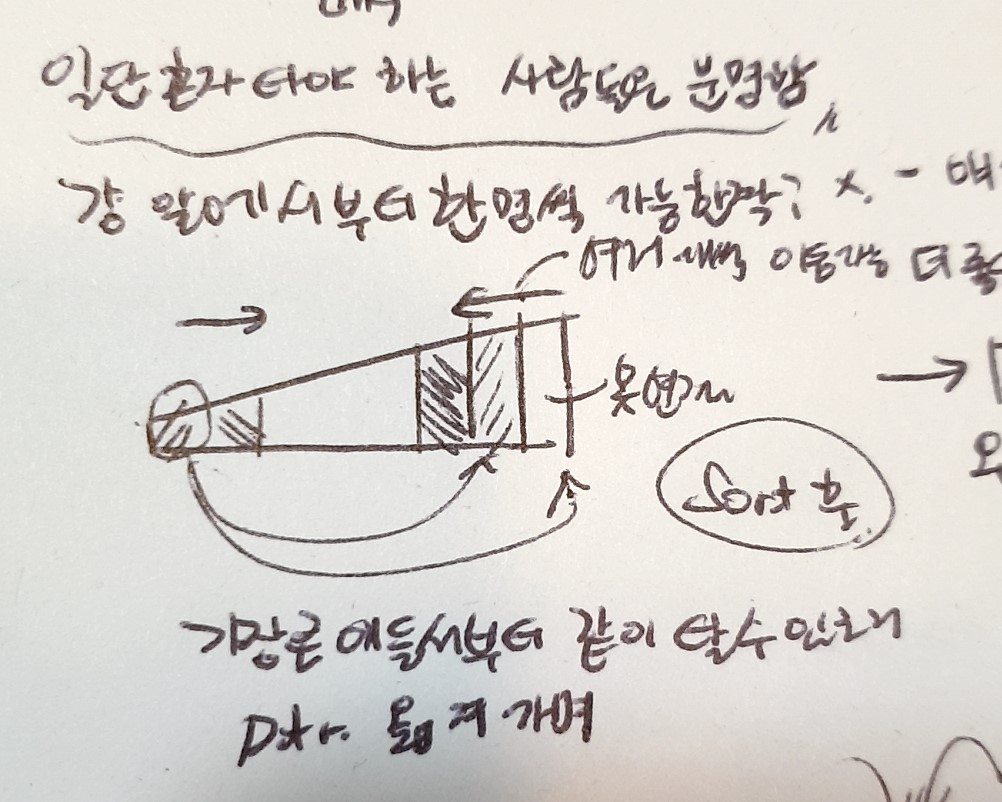 일단 혼자 타야 하는 사람들은 분명함
강 앞에서부터 한명씩 가능한짝? x. -
여러 이동가능 더
못연거
Sort 후
가장큰 애들서부터 같이 탈수 있는지
Ptr. 옮겨가며